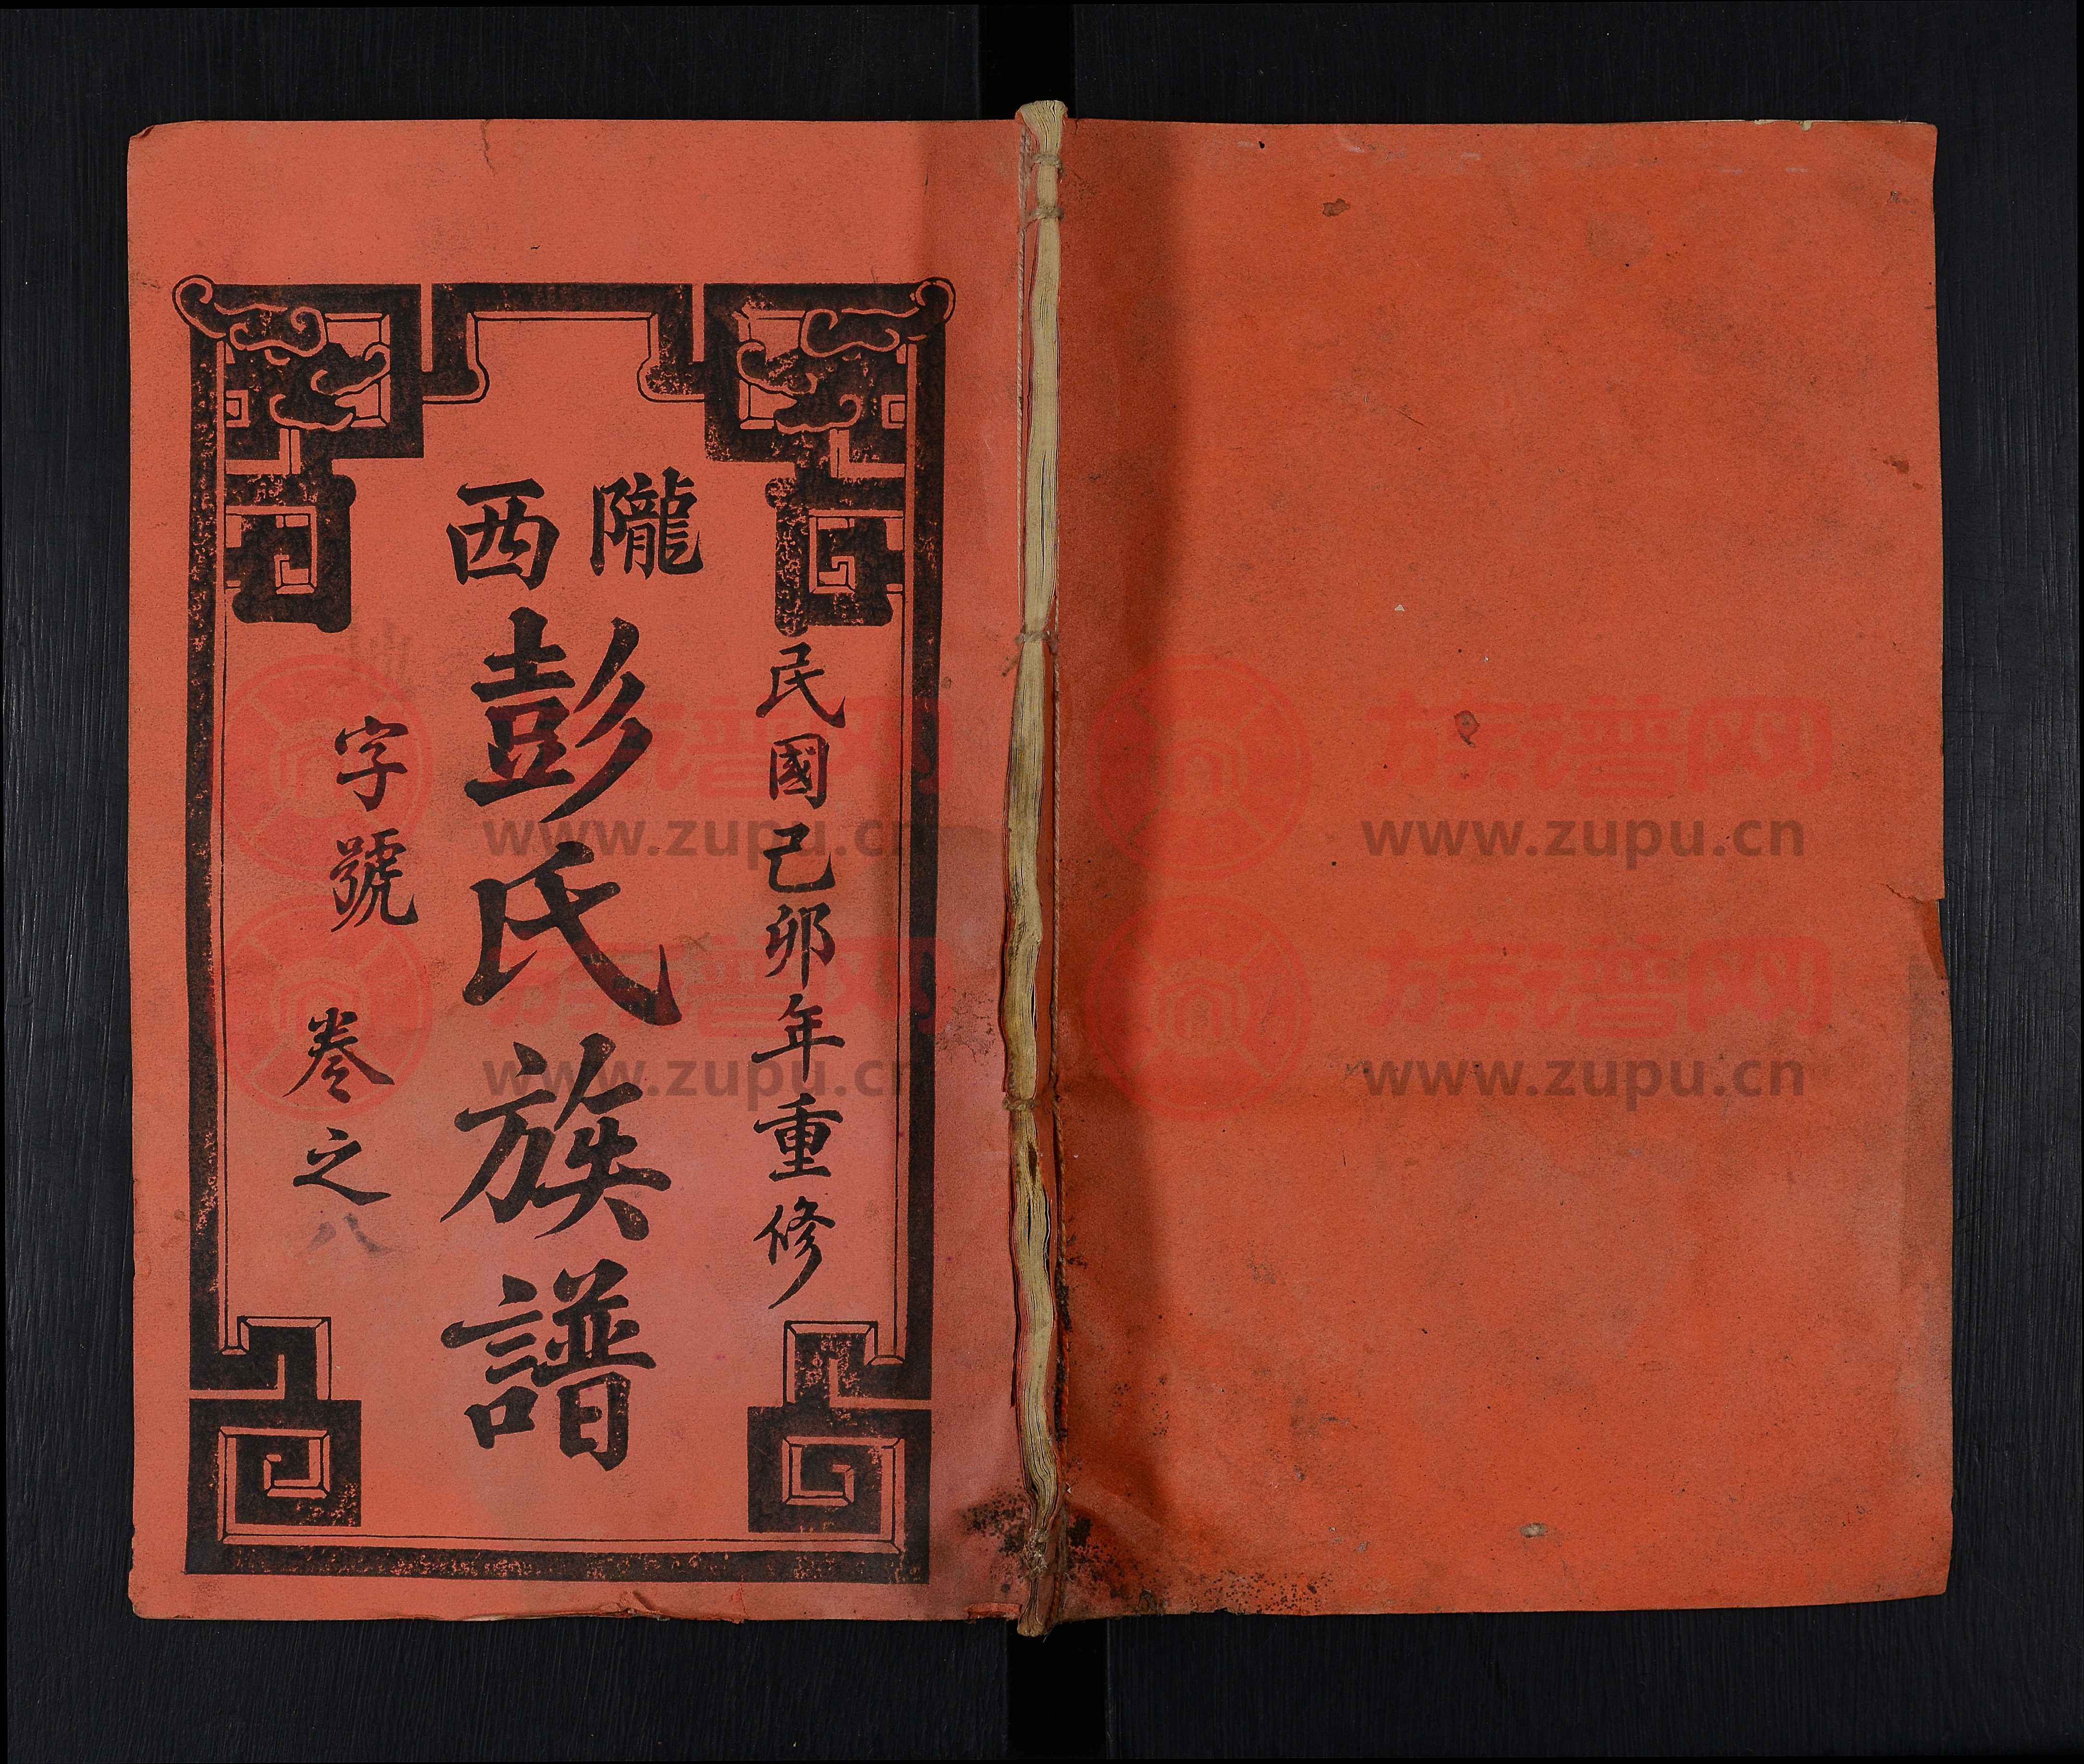 民國己卯年重修
隴西
彭氏族譜
字號 卷之八
族谱网
www.zupu.cn
族谱网
www.zupu.cn
族谱网
www.zupu.cn
族谱网
www.zupu.cn